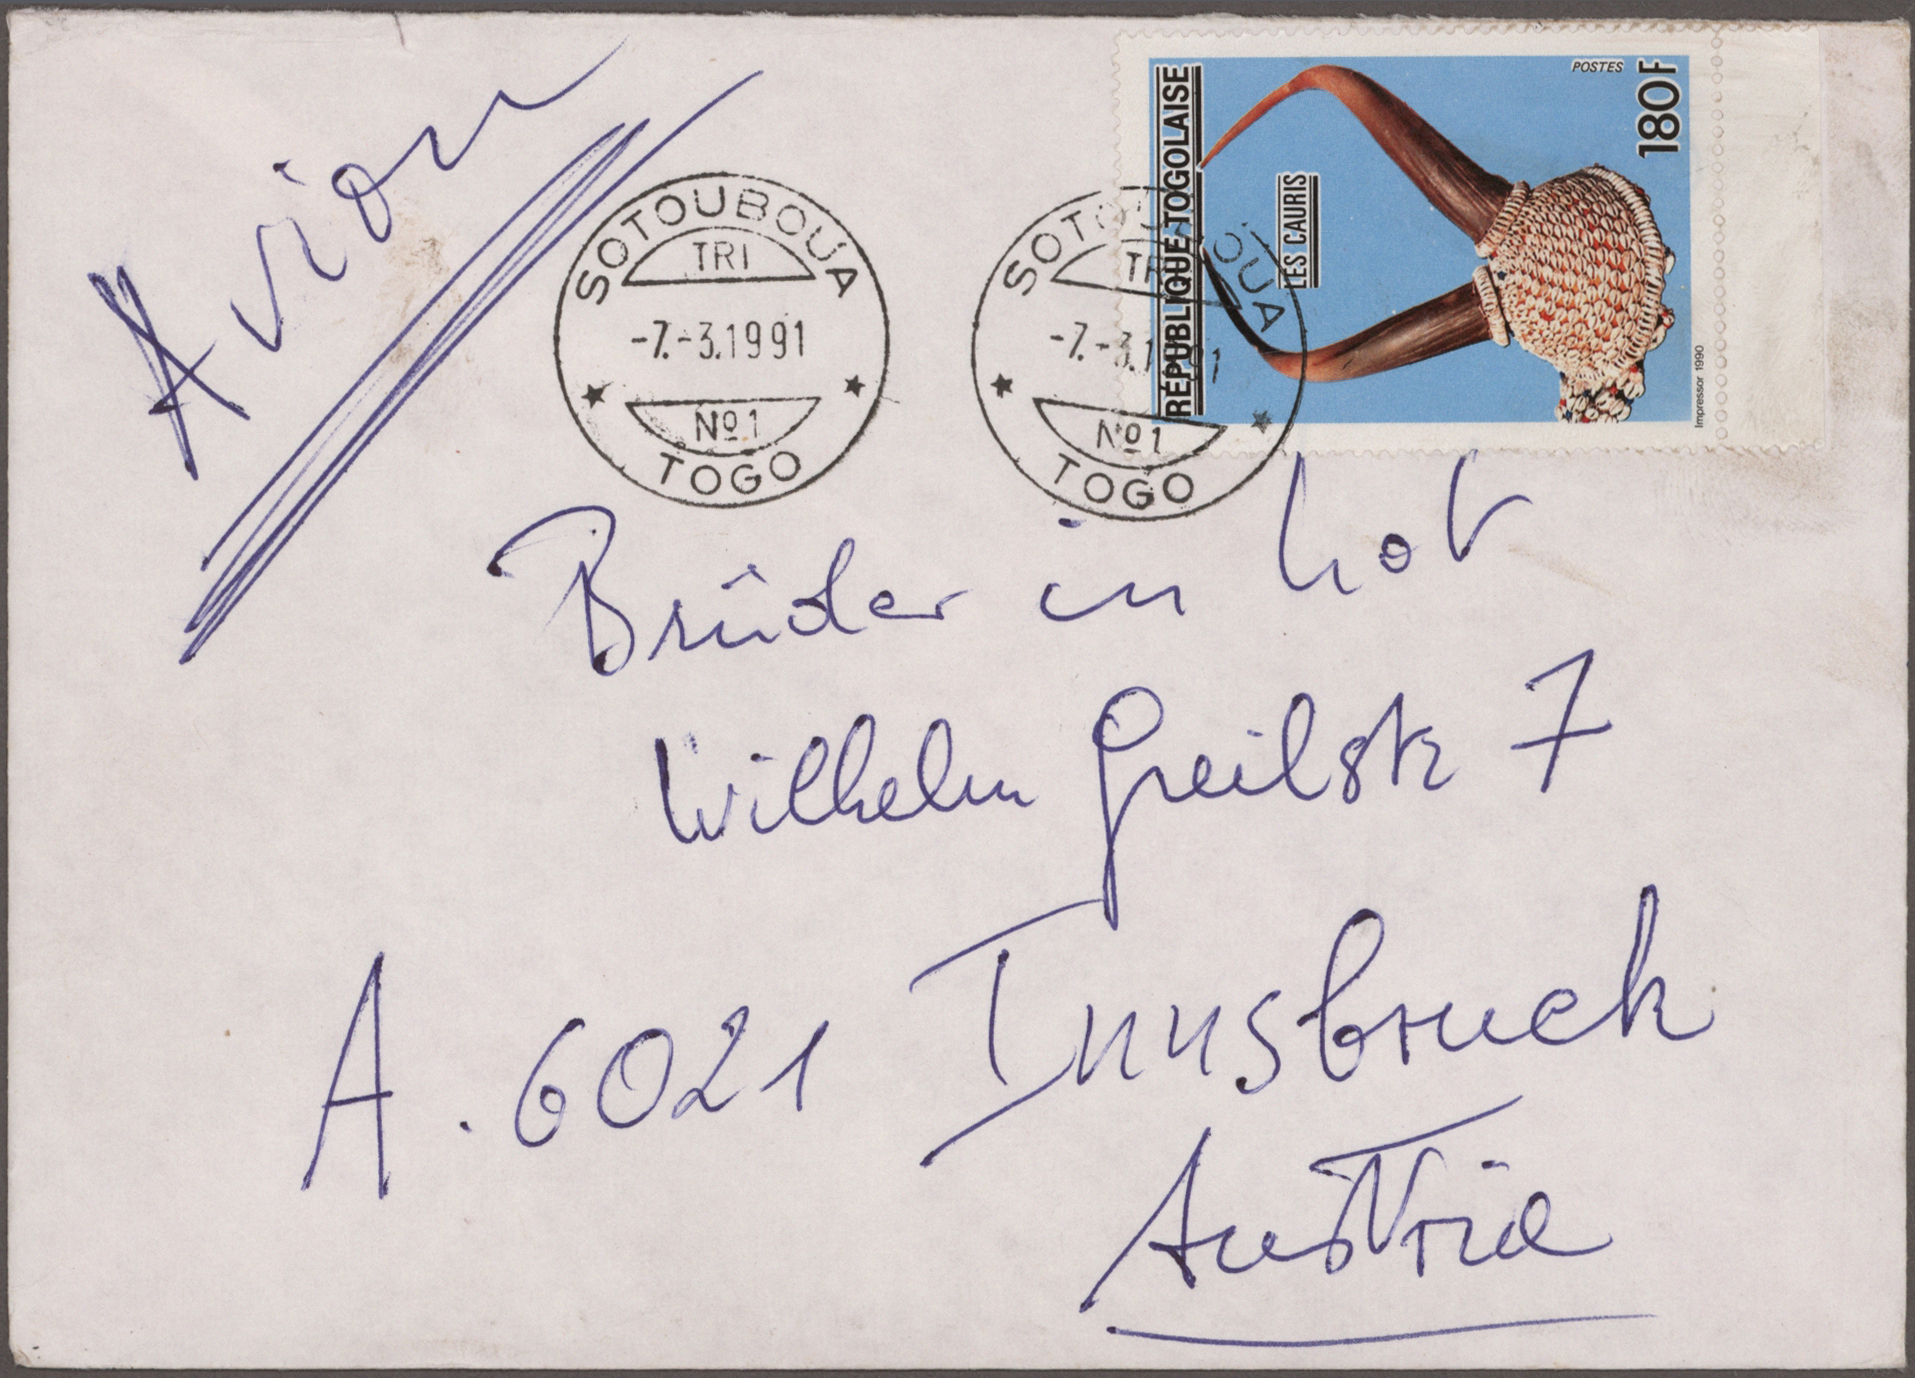 Avion
SOTOUBOUA
TRI
-7.-3.1991
Nº1
TOGO
SOTOUBOUA
TRI
-7.-3.1991
Nº1
TOGO
RÉPUBLIQUE TOGOLAISE
LES CAURIS
POSTES
180F
Impressor 1990
Brüder in Not
Wilhelm Greilstr 7
A. 6021 Innsbruck
Austria